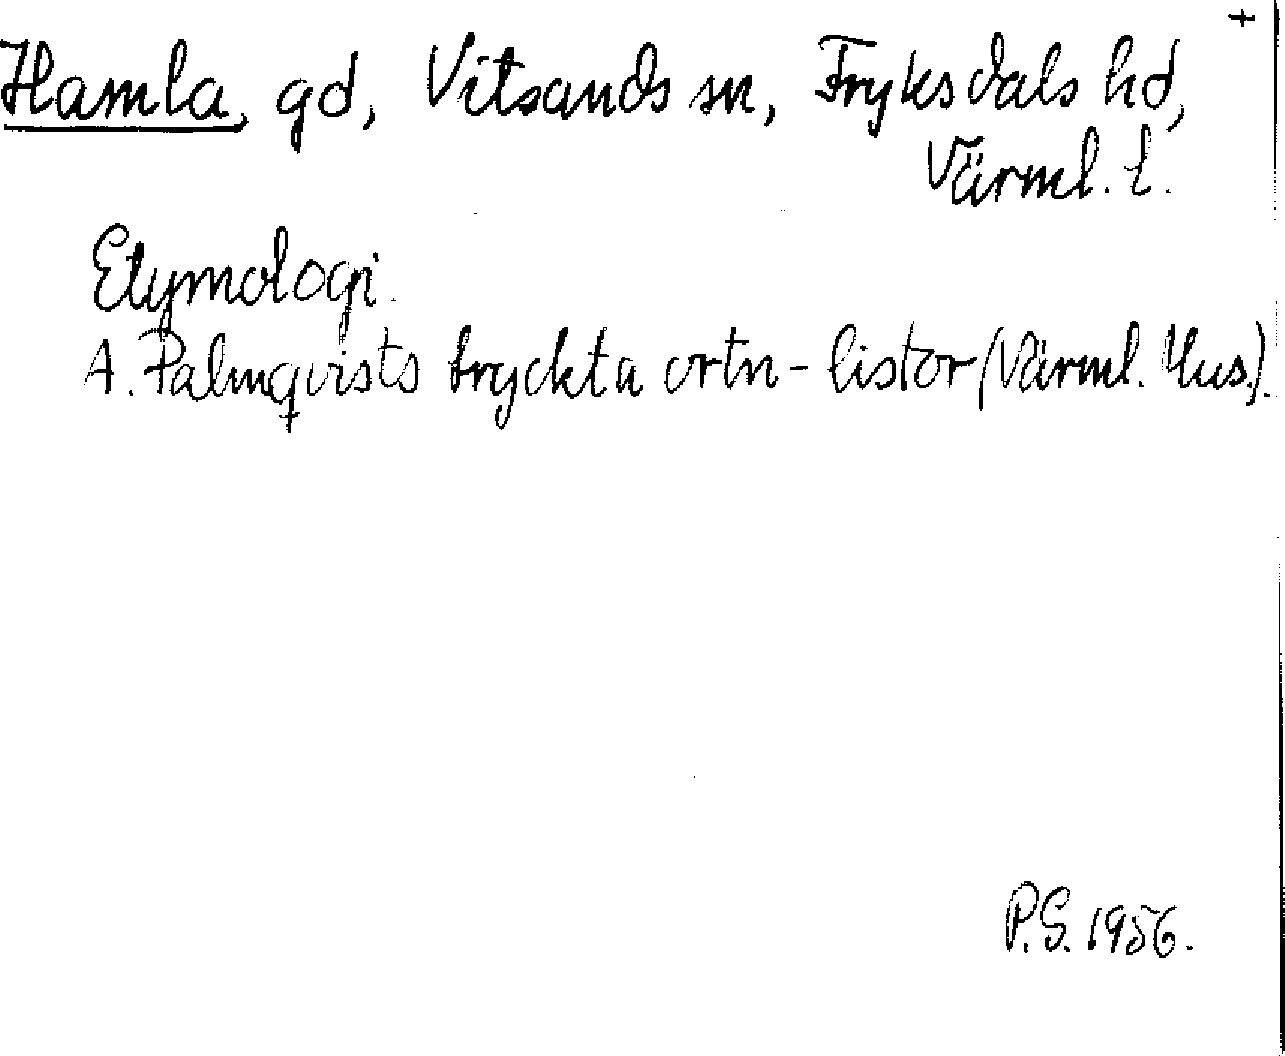 +
Hamla, gd, Vitsands sn, Fryksdals hd,
Värml. l.
Etymologi.
A. Palmqvists tryckta ortn-listor (Värml. Mus.).
P.S. 1956.